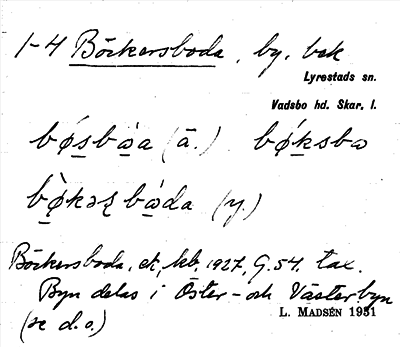 1-4 Böckersboda, by, bek
Lyrestads sn.
Vadsbo hd. Skar. l.
bǿs̱bå̱a (ä.) bǿḵsbə
bø̱̀kəʂ bå̱da (y.)
Böckersboda, ek, kb. 1927, G. 54. tax.
Byn delas i Öster- och Västerbyn
(se d.o.)
L. MADSÉN 1931